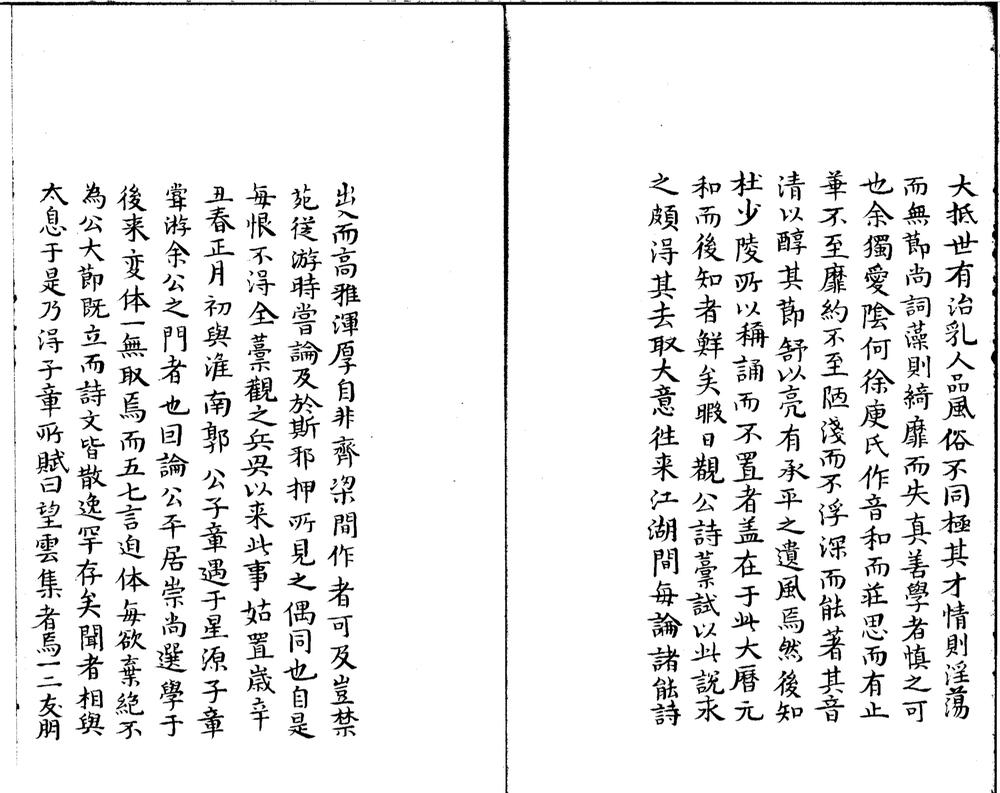 大抵世有治乱人品風俗不同極其才情則淫蕩
而無節尚詞藻則綺靡而失真善學者慎之可
也余獨愛陰何徐庾氏作音和而荘思而有止
華不至靡約不至陋淺而不浮深而能著其音
清以醇其節舒以亮有承平之遺風焉然後知
杜少陵所以稱誦而不置者盖在于此大曆元
和而後知者鮮矣暇日觀公詩藁試以此說求
之頗得其去取大意徃来江湖間每論諸能詩
出入而高雅渾厚自非齊梁間作者可及豈禁
苑従游時嘗論及於斯邪抑所見之偶同也自是
每恨不得全藁觀之兵興以来此事姑置歳辛
丑春正月初與淮南郭公子章遇于星源子章
甞游余公之門者也因論公平居崇尚選學于
後来変体一無取焉而五七言近体每欲棄絶不
為公大節既立而詩文皆散逸罕存矣聞者相與
太息于是乃得子章所賦曰望雲集者焉一二友朋